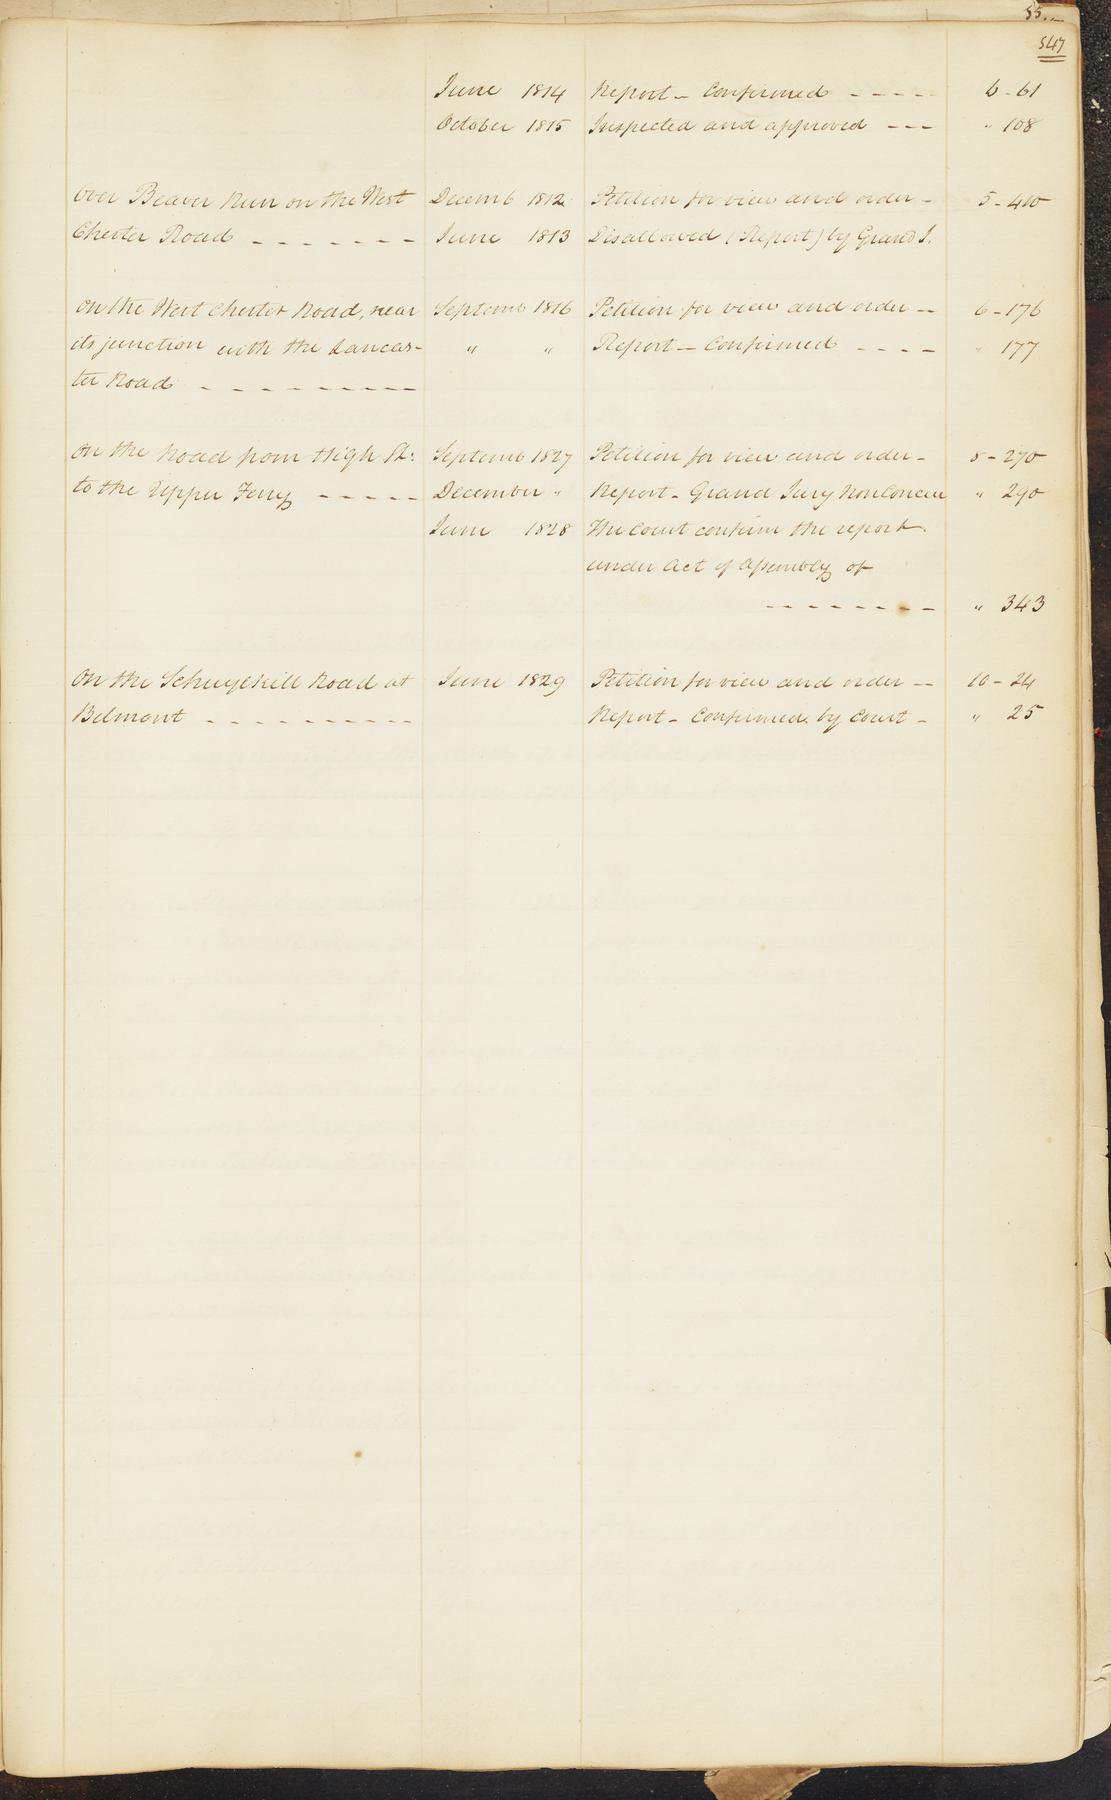 55.
547
June 1814 Report - Confirmed - - - - - 6 - 61
October 1815 Inspected and approved - - - " 108
over Beaver Run on the West Decemb 1812 Petition for view and order - 5 - 410
Chester Road - - - - - - - June 1813 Disallowed (Report) by Grand J.
on the West Chester Road, near Septemb 1816 Petition for view and order -- 6 - 176
its junction with the Lancas- " " Report - Confirmed - - - - " 177
ter Road - - - - - - - - - -
on the Road from High St: Septemb 1827 Petition for view and order - 8 - 270
to the Upper Ferry - - - - - December " Report - Grand Jury NonConcur " 290
June 1828 The Court confirm the report
under Act of Assembly of
- - - - - - - - " 343
on the Schuylkill Road at June 1829 Petition for view and order -- 10 - 24
Belmont - - - - - - - - - - Report - Confirmed by Court - " 25